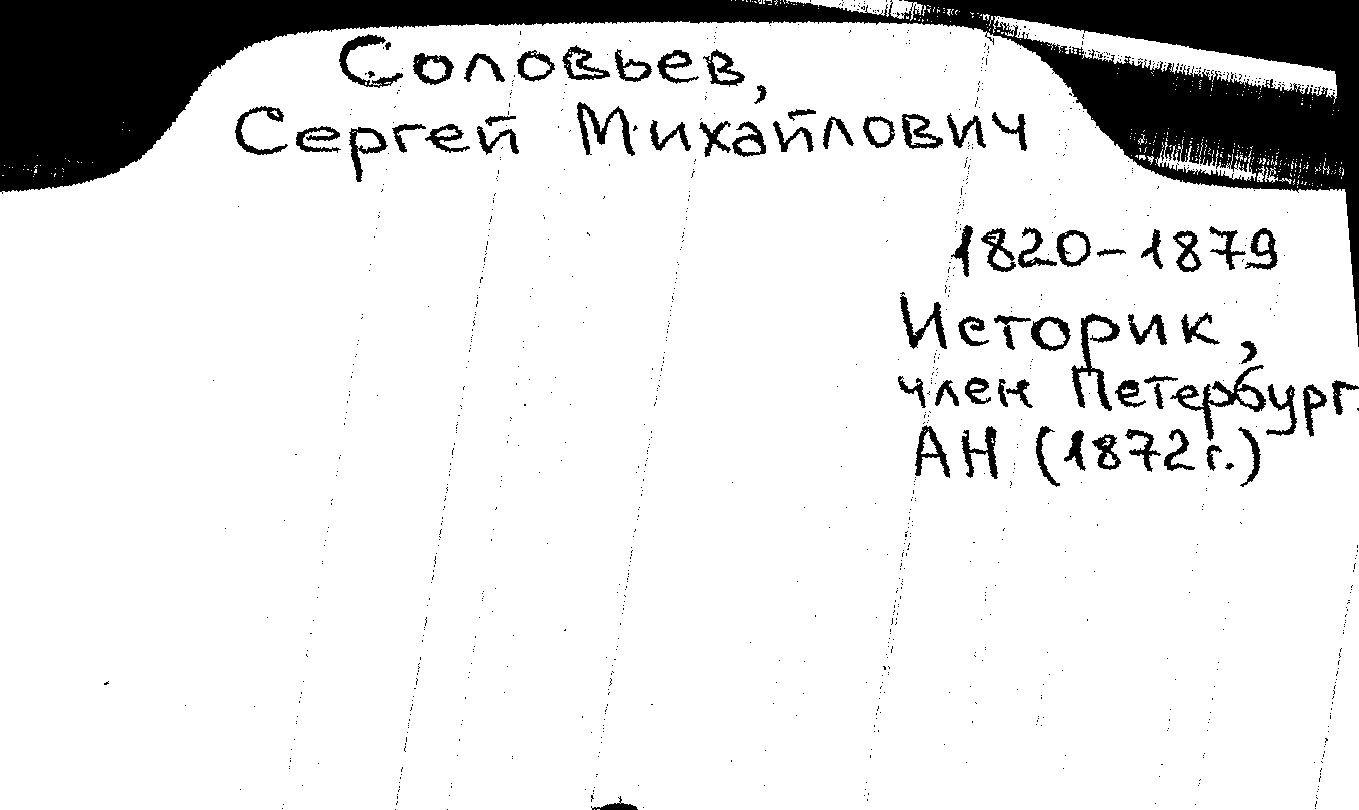 Соловьев,
Сергей Михайлович
1820-1879
Историк,
член Петербург.
АН (1872г.)